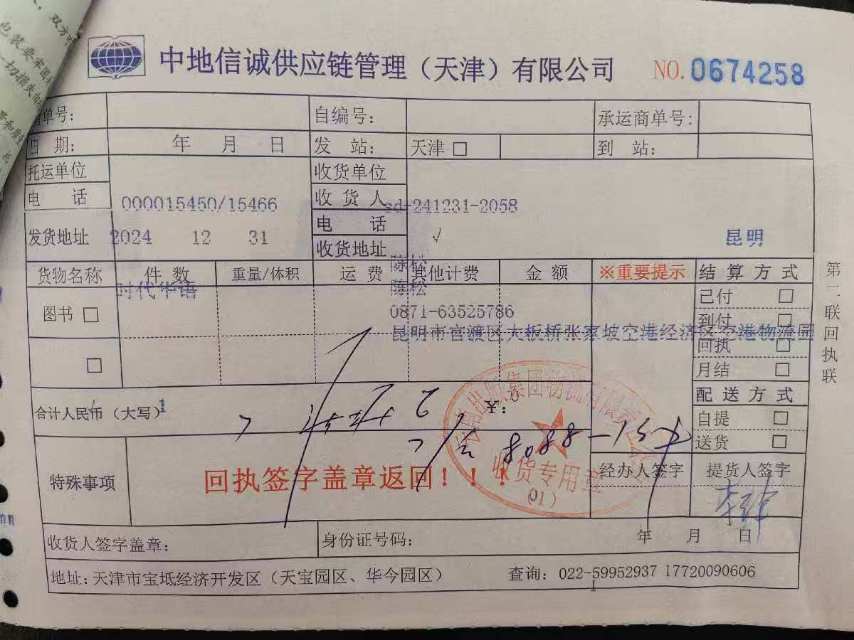 中地信诚供应链管理（天津）有限公司 NO.0674258
单号： 自编号： 承运商单号：
日 期： 年 月 日 发 站： 天津 □ 到 站：
托运单位 收货单位
电 话 000015450/15466 收 货 人 sd-241231-2058
电 话
发货地址 2024 12 31 收货地址 √ 昆明
货物名称 件 数 重量/体积 运 费 其他计费 金 额 ※重要提示 结 算 方 式
陈松
时代华语 陈松 已付 □
图书 □ 0871-63525786 到付 □
昆明市官渡区大板桥张家坡空港经济区空港物流园
回执 □
□ 月结 □
配 送 方 式
合计人民币（大写） 1 ¥： 0 自提 □
送货 □
收货专用章
(01)
特殊事项 回执签字盖章返回！！！ 经办人签字 提货人签字
收货人签字盖章： 身份证号码： 年 月 日
地址：天津市宝坻经济开发区（天宝园区、华今园区） 查询：022-59952937 17720090606
1
第二联回执联